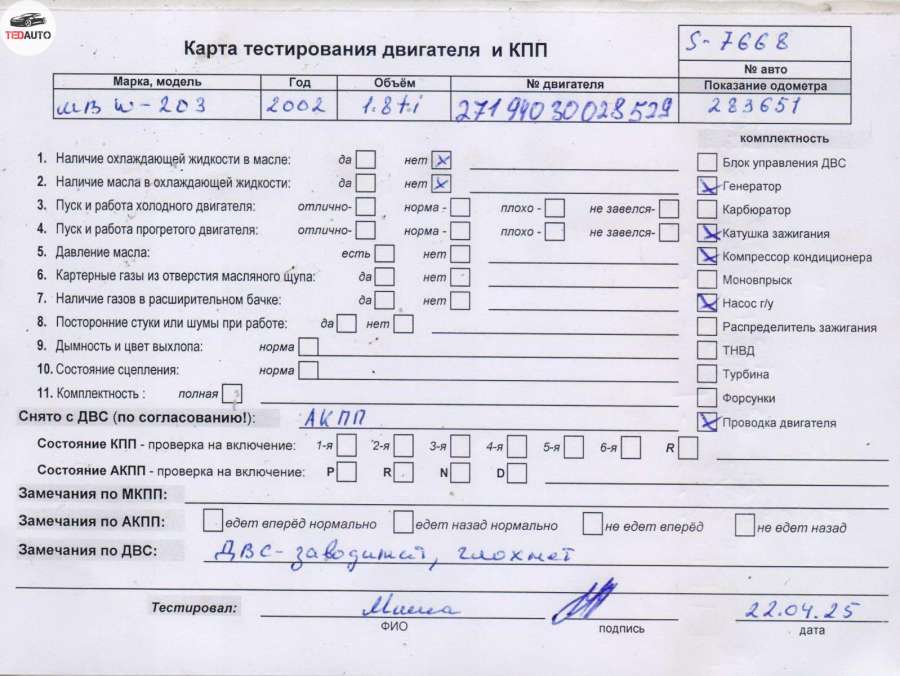 TEDAUTO
Карта тестирования двигателя и КПП
S-7668
№ авто
Марка, модель Год Объём № двигателя Показание одометра
МВ W-203 2002 1.8 ti 27194030028529 283651
комплектность
1. Наличие охлаждающей жидкости в масле: да нет x
Блок управления ДВС
2. Наличие масла в охлаждающей жидкости: да нет x
Генератор
3. Пуск и работа холодного двигателя: отлично- норма - плохо - не завелся-
Карбюратор
4. Пуск и работа прогретого двигателя: отлично- норма - плохо - не завелся-
Катушка зажигания
5. Давление масла: есть нет
Компрессор кондиционера
6. Картерные газы из отверстия масляного щупа: да нет
Моновпрыск
7. Наличие газов в расширительном бачке: да нет
Насос г/у
8. Посторонние стуки или шумы при работе: да нет
Распределитель зажигания
9. Дымность и цвет выхлопа: норма
ТНВД
10. Состояние сцепления: норма
Турбина
11. Комплектность : полная
Форсунки
Снято с ДВС (по согласованию!): АКПП
Проводка двигателя
Состояние КПП - проверка на включение: 1-я 2-я 3-я 4-я 5-я 6-я R
Состояние АКПП - проверка на включение: P R N D
Замечания по МКПП:
Замечания по АКПП: едет вперёд нормально едет назад нормально не едет вперёд не едет назад
Замечания по ДВС: ДВС - заводится, глохнет
Тестировал: 22.04.25
ФИО подпись дата